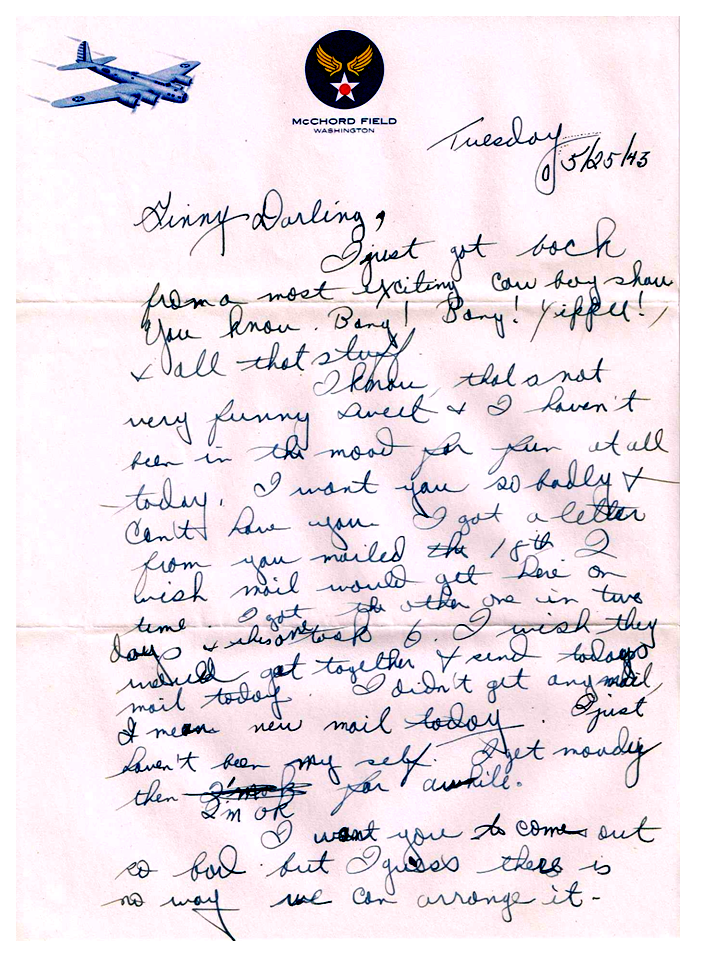 McCHORD FIELD
WASHINGTON
Tuesday 5/25/43
Ginny Darling,
I just got back
from a most exciting cow boy show
You know. Bang! Bang! Yippee!,
& all that stuff.
I know, that's not
very funny sweet & I haven't
been in the mood for fun at all
today. I want you so badly &
Can't have you. I got a letter
from you mailed the 18th I
wish mail would get here on
time. I got the other one in two
days & this one took 6. I wish they
would get together & send todays
mail today. I didn't get any mail,
I mean new mail today. I just
haven't been my self. I get moody
then I'm ok for awhile.
I'm ok
I want you to come out
so bad but I guess there is
no way we can arrange it-